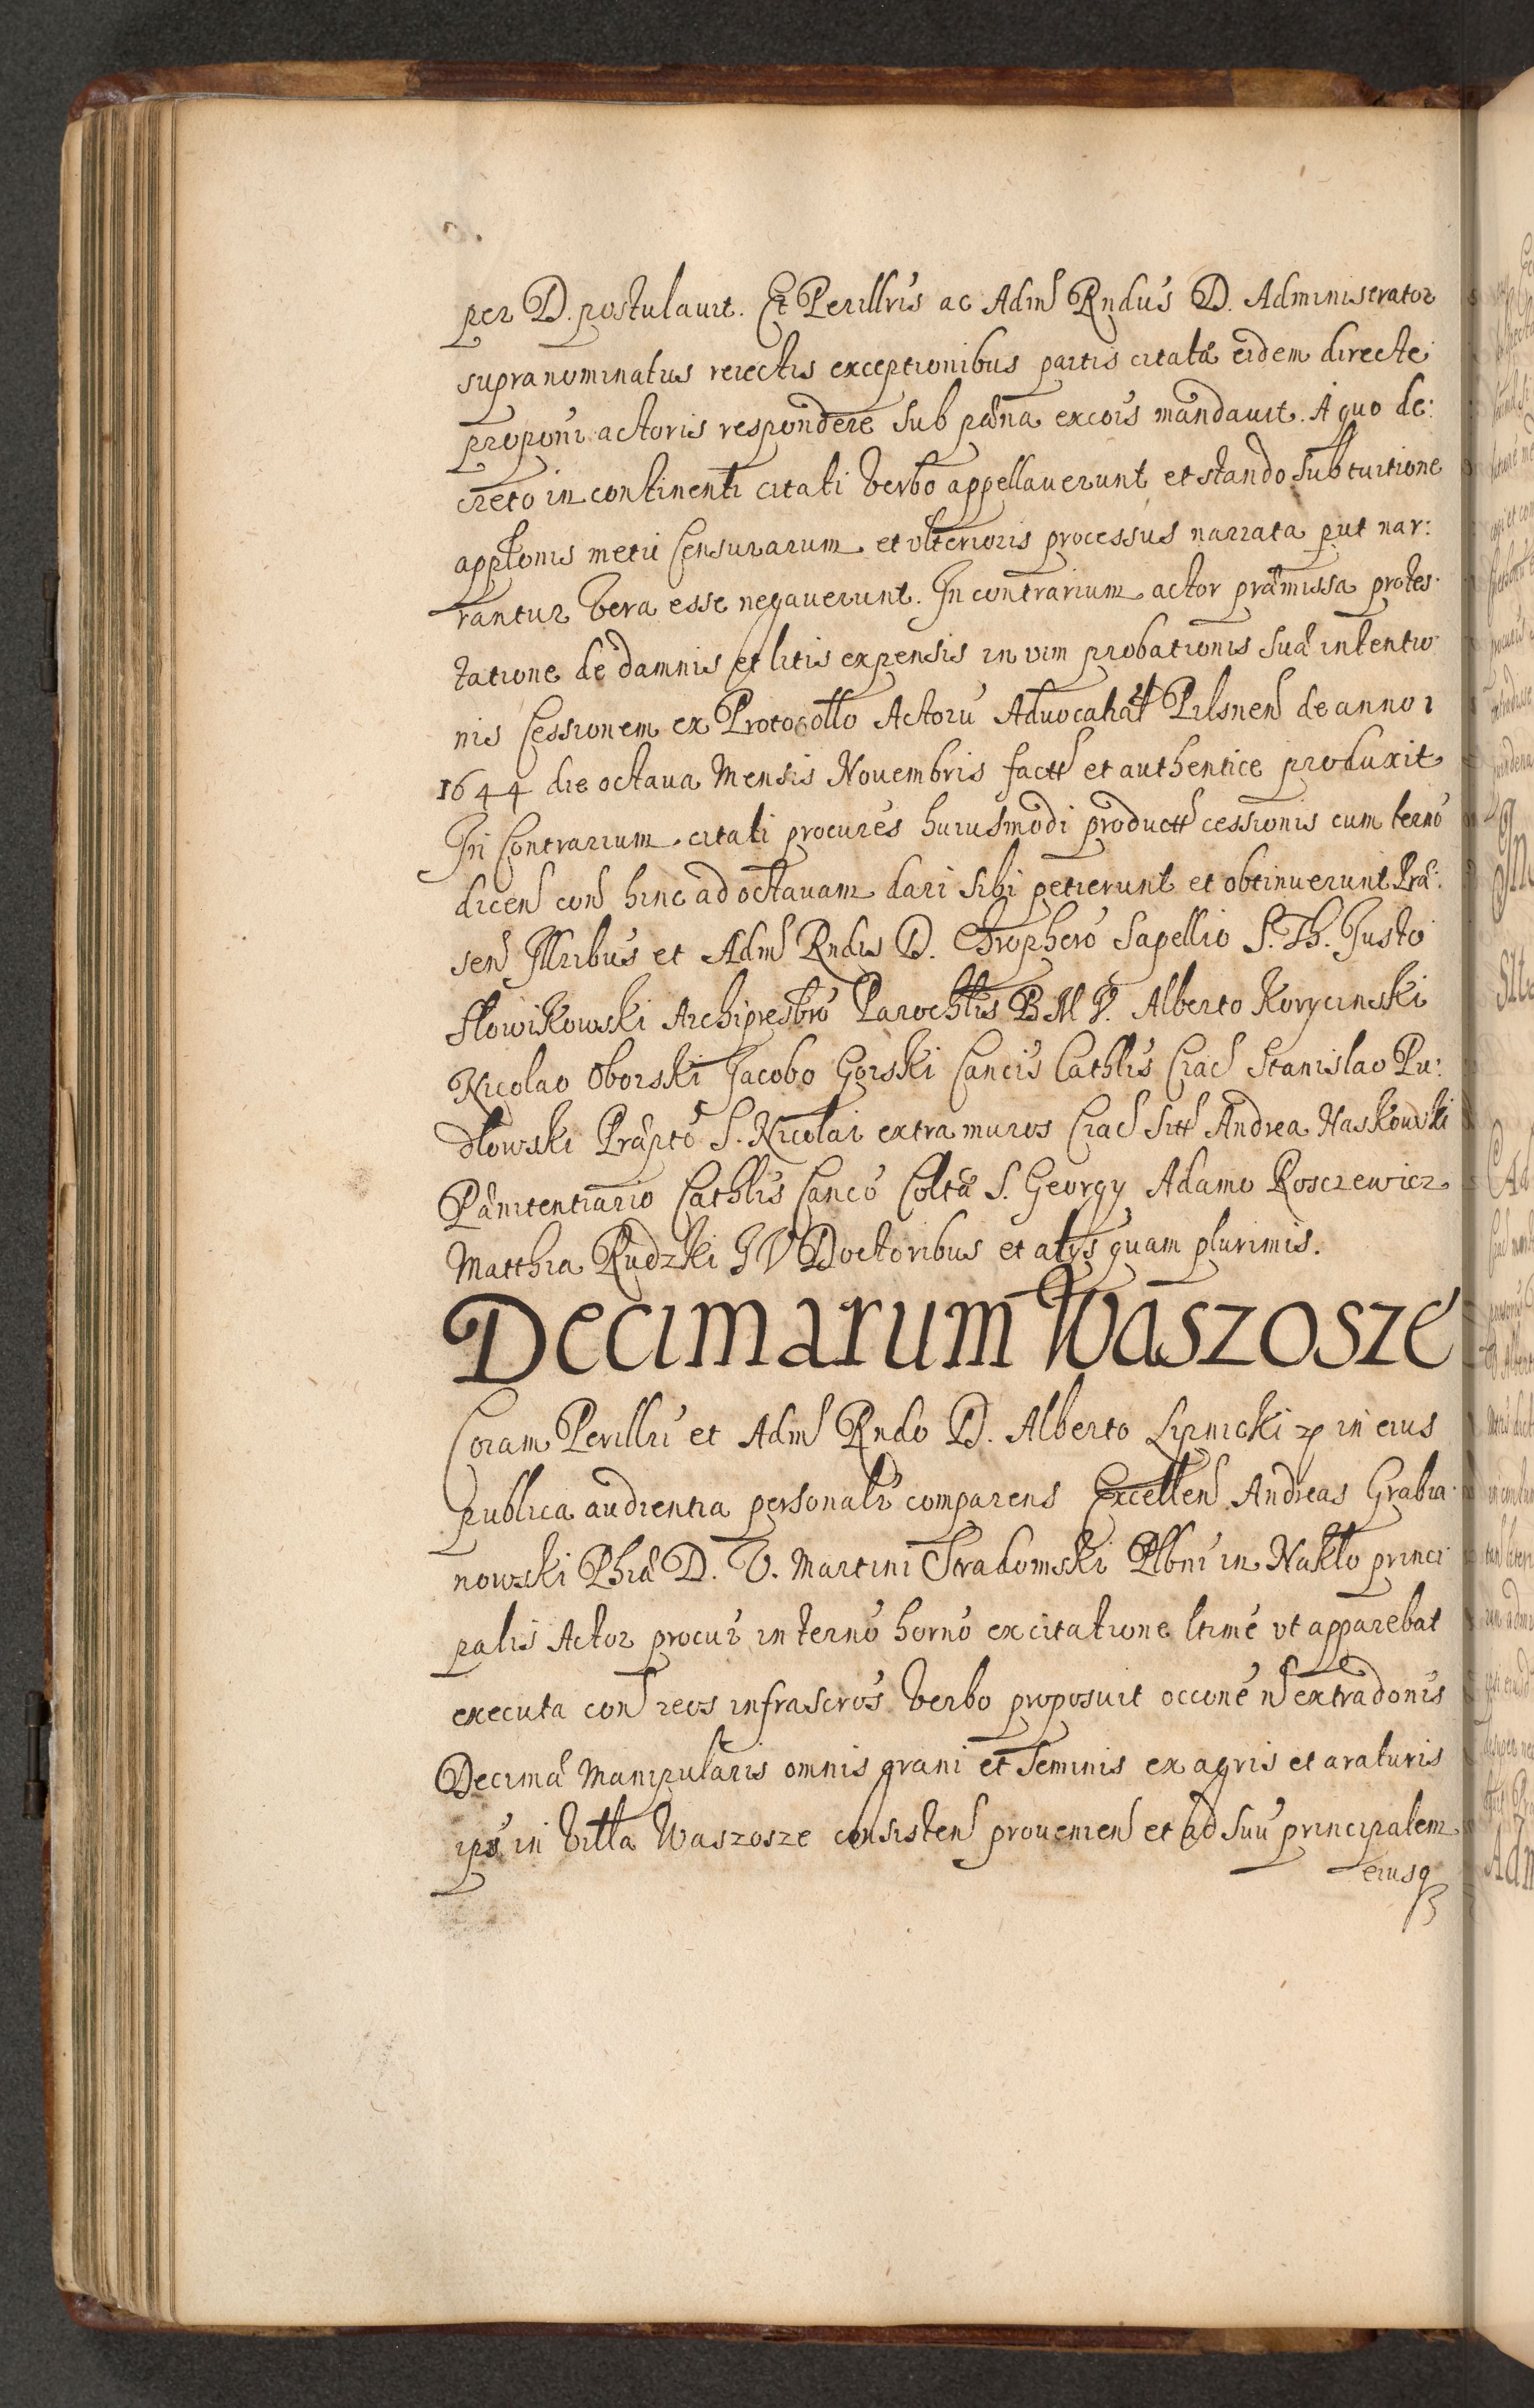 per D. postulauit. Et Perillris ac Adm Rndus D. Administrator
supranominatus reiectis exceptionibus partis citatæ eidem directe
proponi actoris respondere sub pœna excois mandauit. A quo de:
creto in continenti citati verbo appellauerunt et stando sub tuitione
applonis metu Censurarum et vlterioris processus narrata put nar:
rantur vera esse negauerunt. In contrarium actor præmissa protes
tatione de damnis et litis expensis in vim probationis suæ intentio
nis Cessionem ex Protocollo Actoru Aduocahat Pilsnen de anno
1644 die octaua Mensis Nouembris fact et authentice produxit
In Contrarium citati procures huiusmodi product cessionis cum terno
dicen con hinc ad octauam dari sibi petierunt et obtinuerunt Præ:
sen Illribus et Adm Rndis D. Chrophero Sapellio S. Th. Justo
Slowikowski Archipresbro Parochlis B M V. Alberto Korycinski
Nicolao Oborski Jacobo Gorski Cancis Cathlis Crac Stanislao Pu:
dlowski Præpto S. Nicolai extra muros Crac Sitt Andrea Naskowski
Pænitentiario Cathlis Canco Coltæ S. Georgy Adamo Rosczewicz
Matthia Rudzki J V Doctoribus et alys quam plurimis.
Decimarum Waszosze
Coram Perillri et Adm Rndo D. Alberto Lipnicki in eius
publica audientia personalr comparens Excellen Andreas Grabia
nowski Phiæ D. V. Martini Stradomski Plbni in Nakło princi
palis Actor procur in terno horno ex citatione ltime vt apparebat
executa con reos infrascros verbo proposuit occone n extradonis
Decimæ Manipularis omnis grani et Seminis ex agris et araturis
ips in Villa Waszosze consisten prouenien et ad suu principalem
eiusq